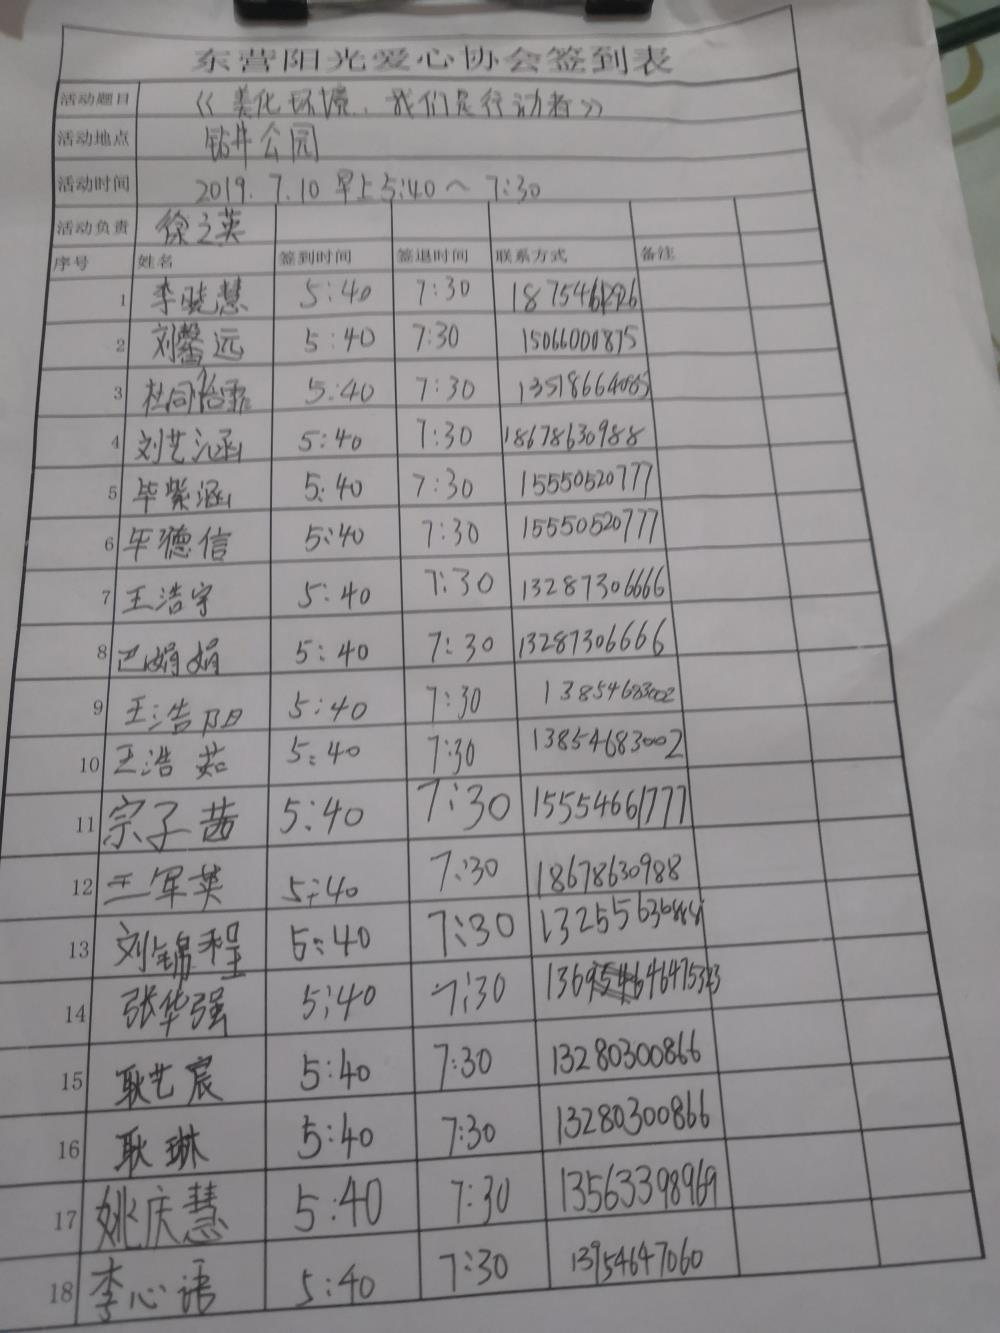 东营阳光爱心协会签到表
活动题目 《美化环境、我们是行动者》
活动地点 钻井公园
活动时间 2019.7.10 早上5:40～7:30
活动负责 徐之英
序号 姓名 签到时间 签退时间 联系方式 备注
1 李晓慧 5:40 7:30
2 刘馨远 5:40 7:30 15066000875
3 杜同怡霏 5:40 7:30
4 刘艺涵 5:40 7:30 18678630988
5 毕紫涵 5:40 7:30 15550520777
6 毕德信 5:40 7:30 15550520777
7 王浩宇 5:40 7:30 13287306666
8 巴娟娟 5:40 7:30 13287306666
9 王浩阳 5:40 7:30 13854683002
10 王浩茹 5:40 7:30 13854683002
11 宗子茜 5:40 7:30 15554661777
12 王军英 5:40 7:30 18678630988
13 刘锦程 5:40 7:30
14 张华强 5:40 7:30
15 耿艺宸 5:40 7:30 13280300866
16 耿琳 5:40 7:30 13280300866
17 姚庆慧 5:40 7:30 13563398969
18 李心语 5:40 7:30 13954647060